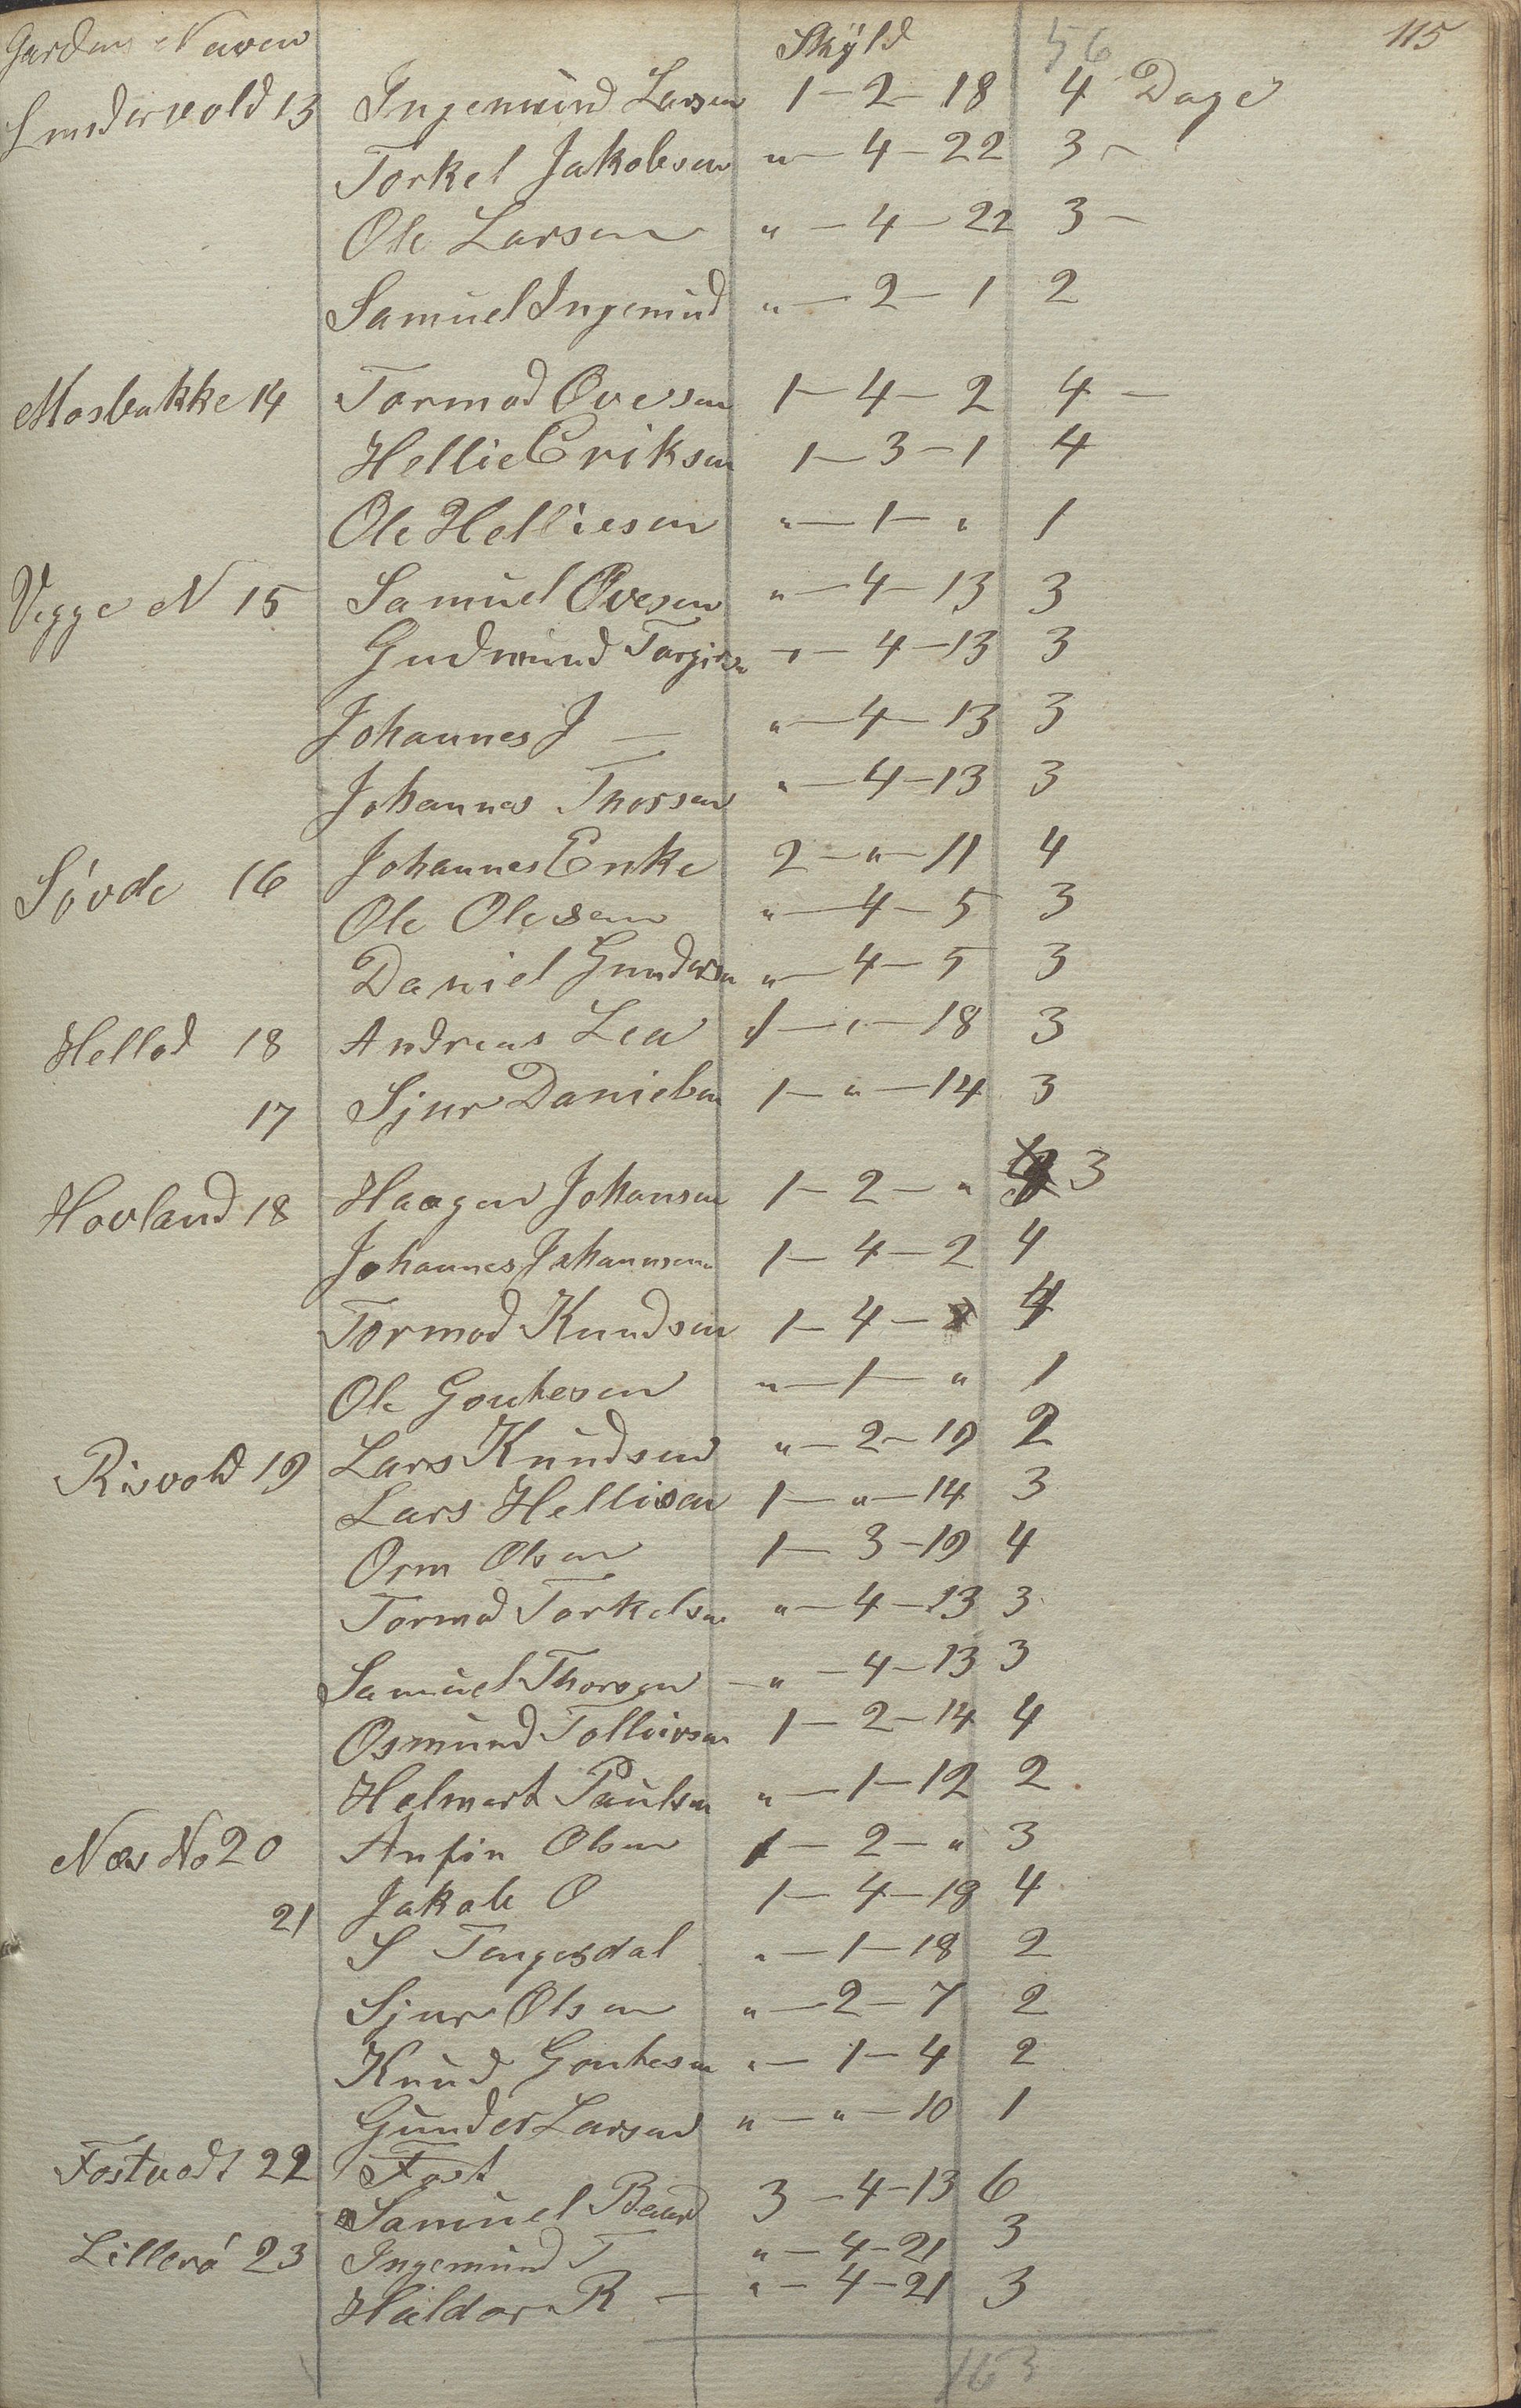 Gardens Navn Skyld 56 115
Lundervold 13 Ingemund Larsen 1 — 2 — 18 4 Dage
Torkel Jakobsen " — 4 — 22 3 —
Ole Larsen " — 4 — 22 3 —
Samuel Ingemund " — 2 — 1 2
Mosbakke 14 Tormod Ovesen 1 — 4 — 2 4 —
Hellie Eriksen 1 — 3 — 1 4
Ole Helliesen " — 1 — " 1
Vegge N 15 Samuel Ovesen " — 4 — 13 3
Gudmund Torgirs " — 4 — 13 3
Johannes J — " — 4 — 13 3
Johannes Thorsen " — 4 — 13 3
Søvde 16 Johannes Enke 2 — " — 11 4
Ole Olesen " — 4 — 5 3
Daniel Gundersen " — 4 — 5 3
Hellod 18 Andreas Lea 1 — " — 18 3
17 Sjur Danielsen 1 — " — 14 3
Hovland 18 Haagen Johansen 1 — 2 — " 3
Johannes Johannesen 1 — 4 — 2 4
Tormod Knudsen 1 — 4 — 2 4
Ole Goutesen " — 1 — " 1
Risvold 19 Lars Knudsen " — 2 — 19 2
Lars Hellisen 1 — " — 14 3
Orm Olsen 1 — 3 — 19 4
Tormod Torkelsen " — 4 — 13 3
Samuel Thorsen — " — 4 — 13 3
Osmund Tolleivsen 1 — 2 — 14 4
Helmert Paulsen " — 1 — 12 2
Næs No 20 Anfin Olsen 1 — 2 — " 3
21 Jakob O 1 — 4 — 18 4
S Tengesdal " — 1 — 18 2
Sjur Olsen " — 2 — 7 2
Knud Goutesen " — 1 — 4 2
Gunder Larsen " — " — 10 1
Fostvedt 22 Fost
Samuel Baard 3 — 4 — 13 6
Lillerø 23 Ingemund T " — 4 — 21 3
Haldor R — " — 4 — 21 3
163